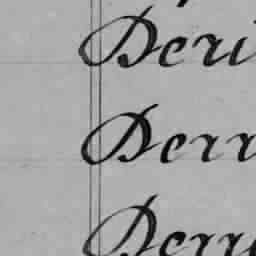 Deri
Derr
Derr